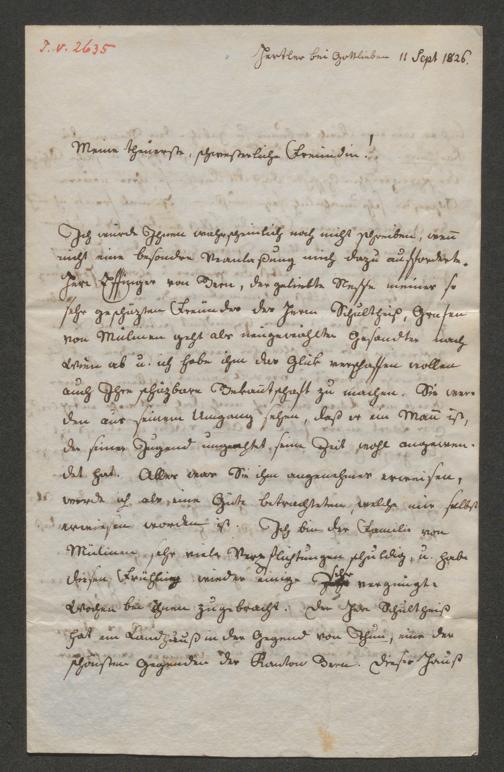 I. v. 2635
Hertler bei Gottlieben 11 Sept 1826.
Meine theuerste, schwesterliche Freundin!
Ich würde Ihnen wahrscheinlich noch nicht schreiben, wenn
nicht eine besondre Veranlaßung mich dazu aufforderte.
Herr Effinger von Bern, der geliebte Neffe meines so
sehr geschäzten Freundes des Herrn Schultheiß, Grafen
von Mülinen geht als neugewählter Gesandter nach
Wien ab u. ich habe ihm das Glük verschaffen wollen
auch Ihre schäzbare Bekantschaft zu machen. Sie wer
den aus seinem Umgang sehen, daß er ein Mañ ist,
der seiner Jugend ungeachtet seine Zeit wohl angewen-
det hat. Alles was Sie ihm angenehmes erweisen,
werde ich als eine Güte betrachten, welche mir selbst
erwiesen worden ist. Ich bin der Familie von
Mülinen sehr viele Verpflichtungen schuldig, u. habe
diesen Frühling wieder einige sehr vergnügte
Wochen bei Ihnen zugebracht. Der Herr Schultheiß
hat ein Landhauß in der Gegend von Thun, eine der
schönsten Gegenden des Kanton Bern. Dieses Hauß